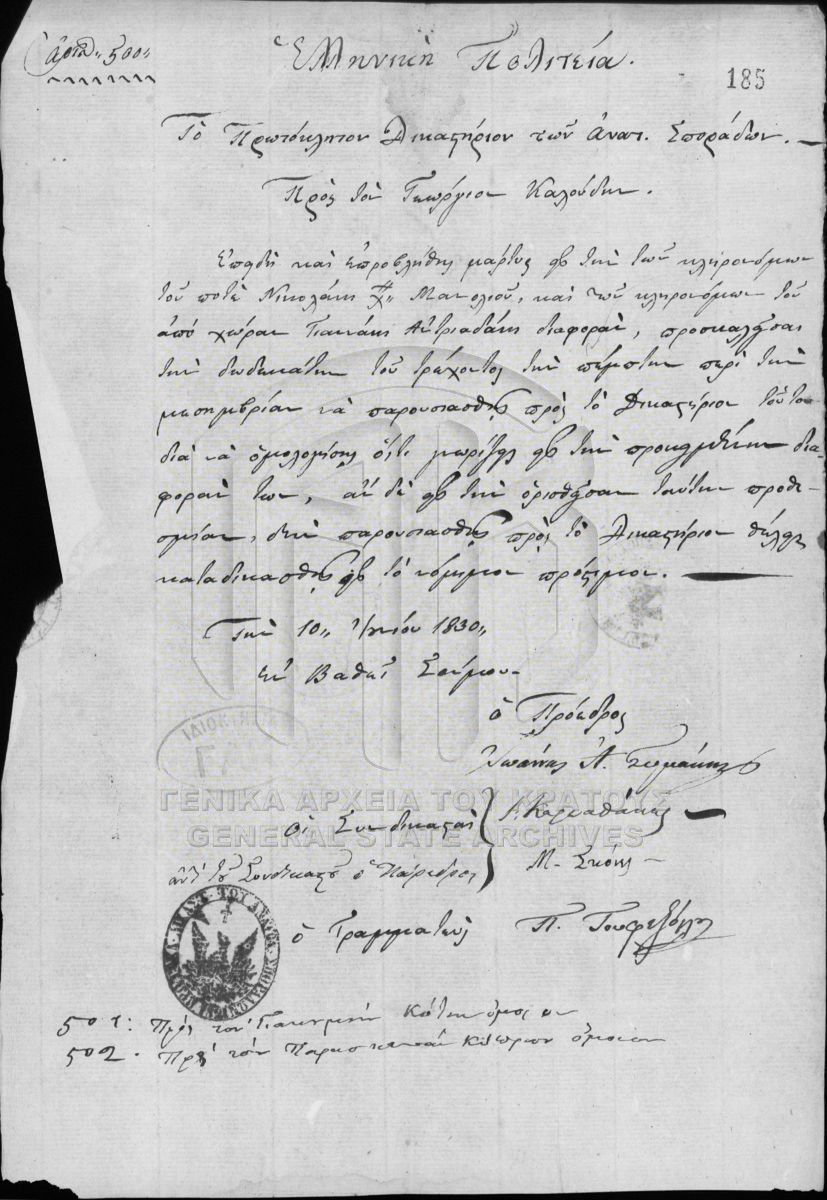 ἀριθ. 500
Ἑλληνικὴ Πολιτεία.
185
Τὸ Πρωτόκλητον Δικαστήριον τῶν Ἀνατ. Σποράδων.
Πρὸς τὸν Γεώργιον Καλούδην.
Ἐπειδὴ καὶ ἐπροβλήθης μάρτυς εἰς τὴν τῶν κληρονόμων
τοῦ ποτὲ Νικολάκη Χ" Μανολιοῦ, καὶ τῶν κληρονόμων τοῦ
ἀπὸ χώραν διαφορὰν, προσκαλεῖσαι
τὴν δωδεκάτην τοῦ τρέχοντος τὴν πέμπτην περὶ τὴν
μεσημβρίαν νὰ παρουσιασθῇς πρὸς τὸ Δικαστήριον τοῦτο
διὰ νὰ ὁμολογήσῃς ὅτι γνωρίζεις εἰς τὴν προκειμένην δια-
φοράν των, ἂν δὲ εἰς τὴν ὁρισθεῖσαν ταύτην προθε-
σμίαν, δὲν παρουσιασθῇς πρὸς τὸ Δικαστήριον θέλεις
καταδικασθῇς εἰς τὸ νόμιμον πρόστιμον.
Τὴν 10 Ἰουνίου 1830
ἐν Βαθεῖ Σάμου
ὁ Πρόεδρος
Ἰωάννης Α.
Οἱ Συνδικασταὶ
ἀντὶ τοῦ Συνδικαστοῦ ὁ Πάρεδρος
Μ.
ὁ Γραμματεὺς Π.
501: Πρὸς τὸν
502. Πρὸς τὸν Παρασκευᾶν ὅμοιον
ΓΕΝΙΚΑ ΑΡΧΕΙΑ ΤΟΥ ΚΡΑΤΟΥΣ
GENERAL STATE ARCHIVES